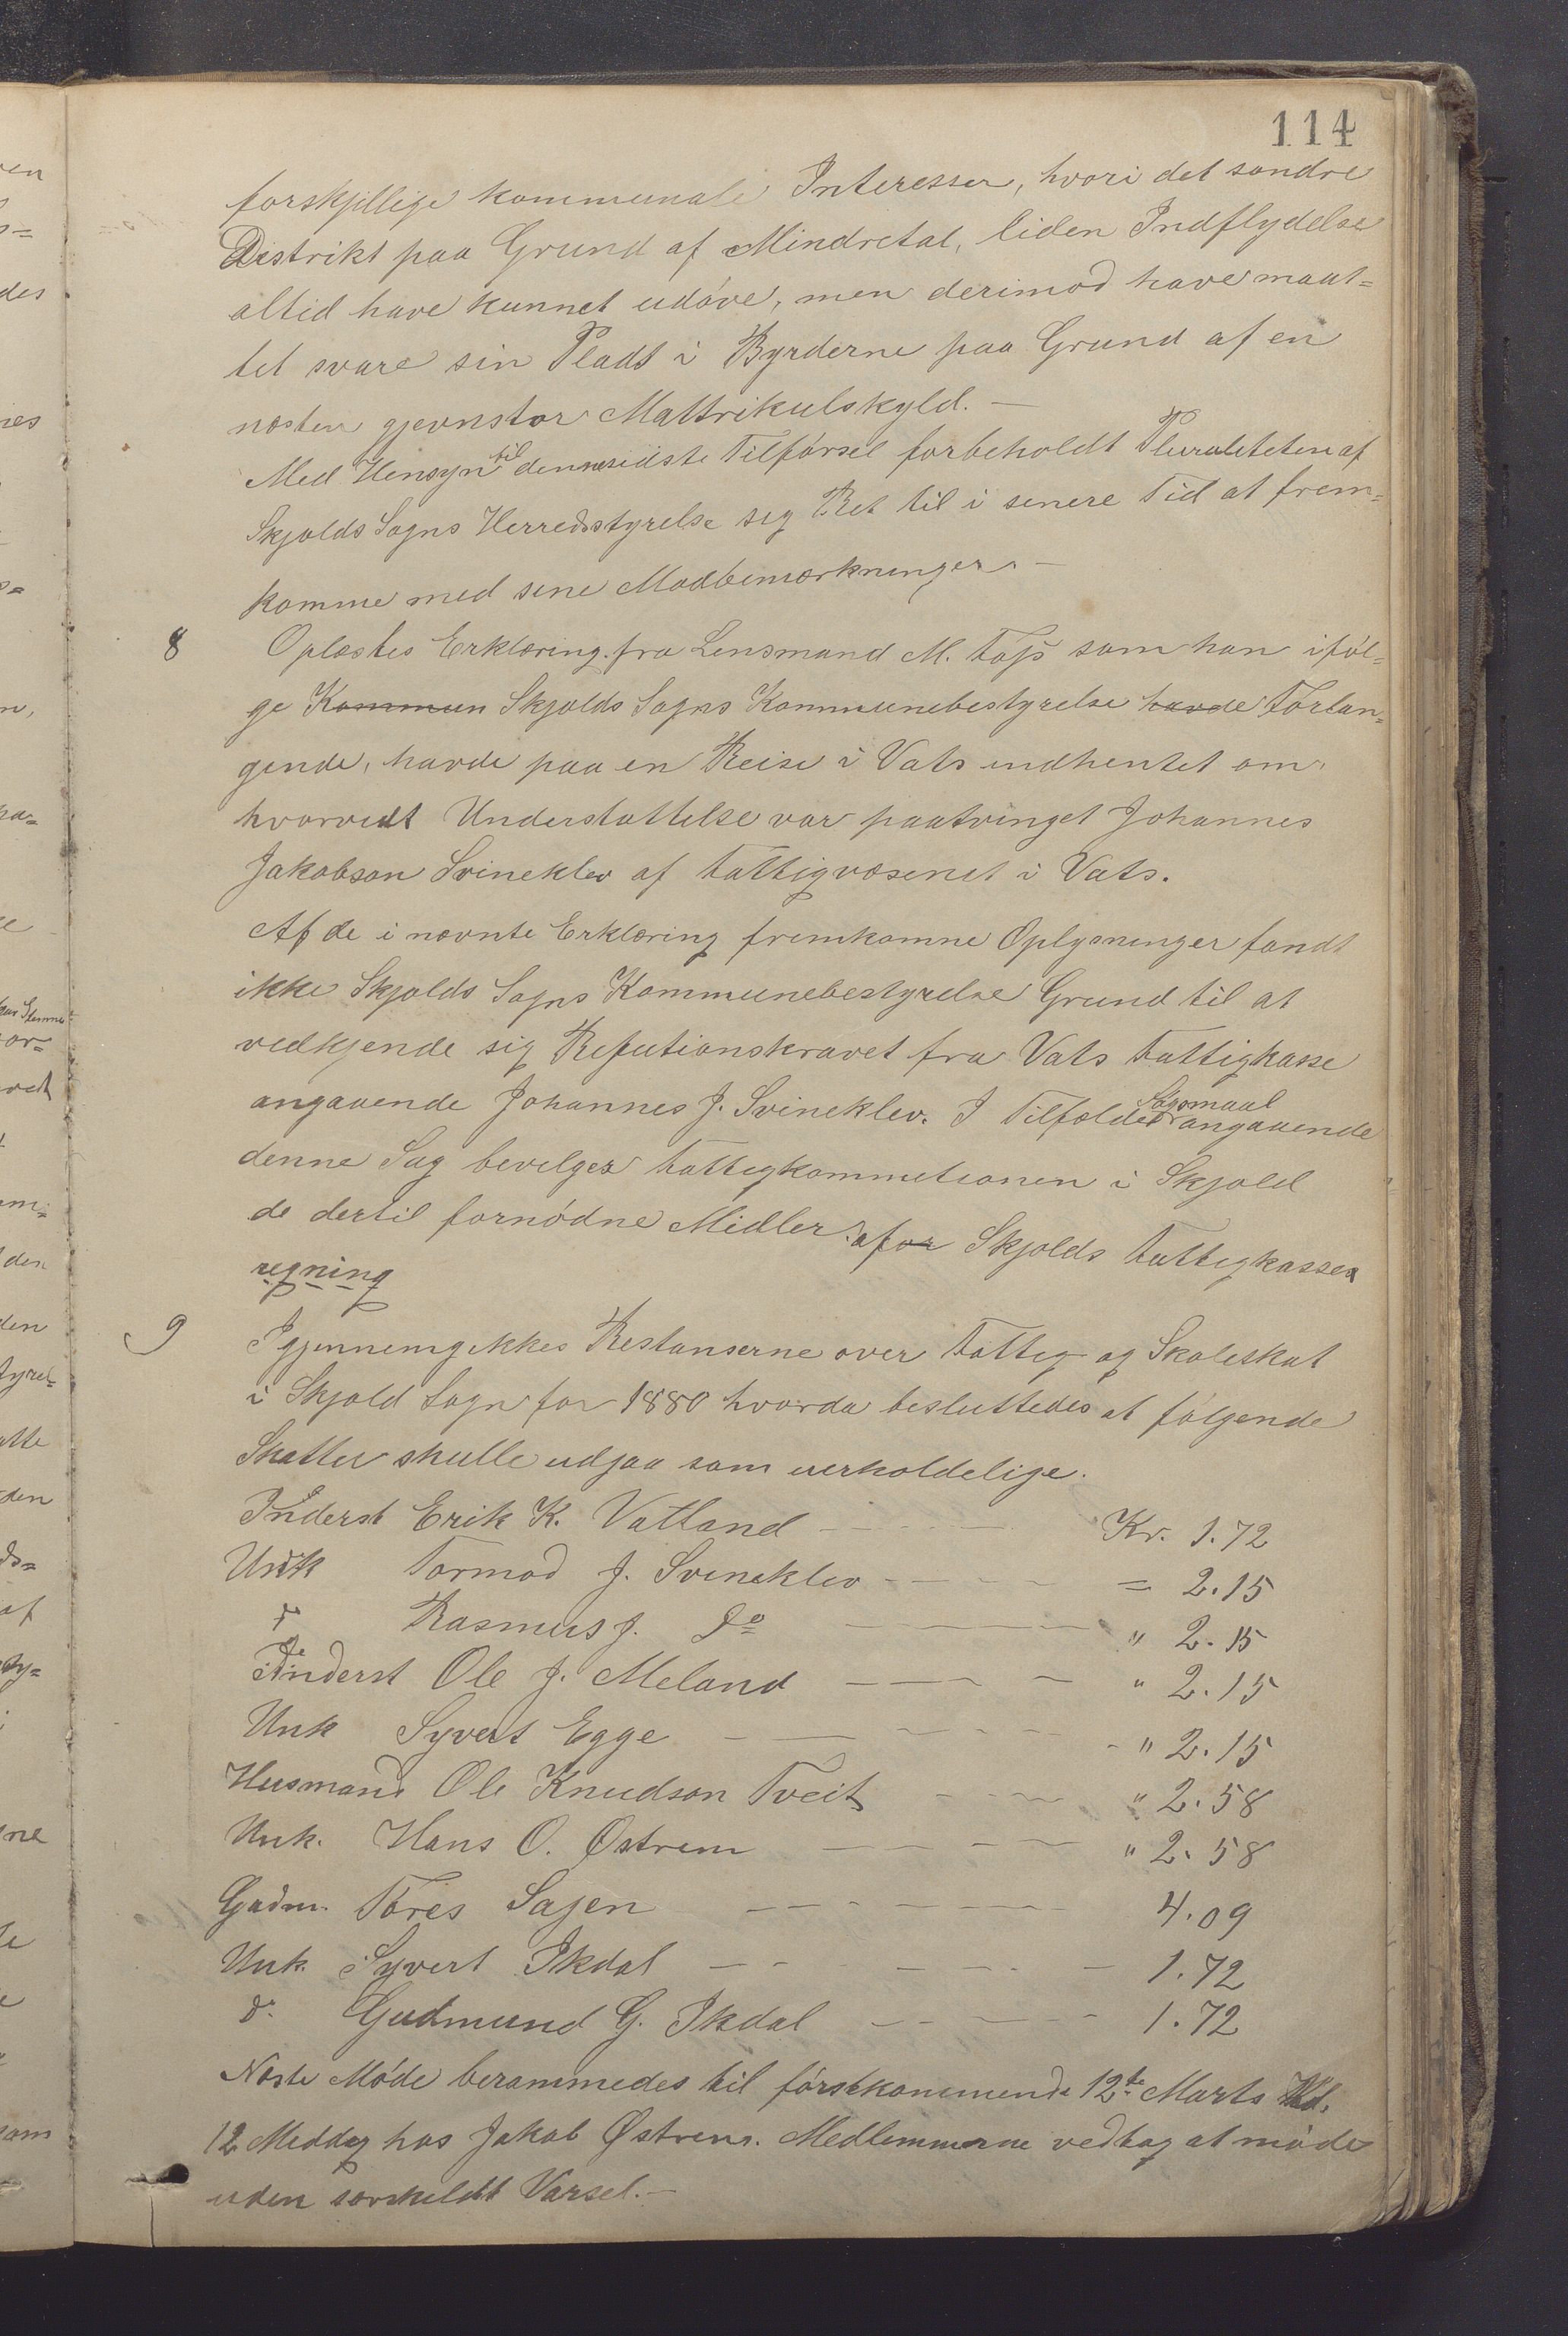 114
forskjellige kommunale Interesser, hvori det søndre
Distrikt paa Grund af Mindretal, liden Indflydelse
altid have kunnet udøve, men derimod have maat=
tet svare sin Pladt i Byrderne paa Grund af en
næsten gjevnstor Mattrikulskyld. —
Med Hensyn til denne sidste Tilførsel forbeholdt Pluraliteten af
Skjolds Sogns Herredsstyrelse sig Ret til i senere Tid at frem=
komme med sine Modbemærkninger. —
8 Oplæstes Erklæring fra Lensmand M. som han iføl=
ge Kommun Skjolds Sogns Kommunebestyrelse havde Forlan=
gende, havde paa en Reise i Vats indhentet om,
hvorvidt Understøttelse var paatvinget Johannes
Jakobson Svineklev af Fattigvæsenet i Vats.
Af de i nævnte Erklæring fremkomne Oplysninger fandt
ikke Skjolds Sogns Kommunebestyrelse Grund til at
vedkjende sig Refutionskravet fra Vats Fattigkasse
angaaende Johannes J. Svineklev. I Tilfælde Søgsmaal angaaende
denne Sag bevilges Fattigkommitionen i Skjold
de dertil fornødne Midler af Skjolds Fattigkasse
regning
9 Igjennemgikkes Restanserne over Fattig og Skoleskat
i Skjold Sogn for 1880 hvorda besluttedes at følgende
Skatter skulle udgaa som uerholdelige.
Inderst Erik K. Vatland — Kr. 1.72
Unk Tormod J. Svineklev — = 2.15
do Rasmus J. Do — " 2.15
Inderst Ole J. Meland — " 2.15
Unk Syvert Egge — " 2.15
Husmand Ole Knudson Tveit — " 2.58
Unk. Hans O. Østrem — " 2.58
Gadm. Tores Sagen — 4.09
Unk. Syvert Ikdal — 1.72
do Gudmund G. Ikdal — 1.72
Næste Møde berammedes til førstkommende 12te Marts Kl.
12 Middag hos Jakob Østrem. Medlemmerne vedtog at møde
uden særskildt Varsel. —